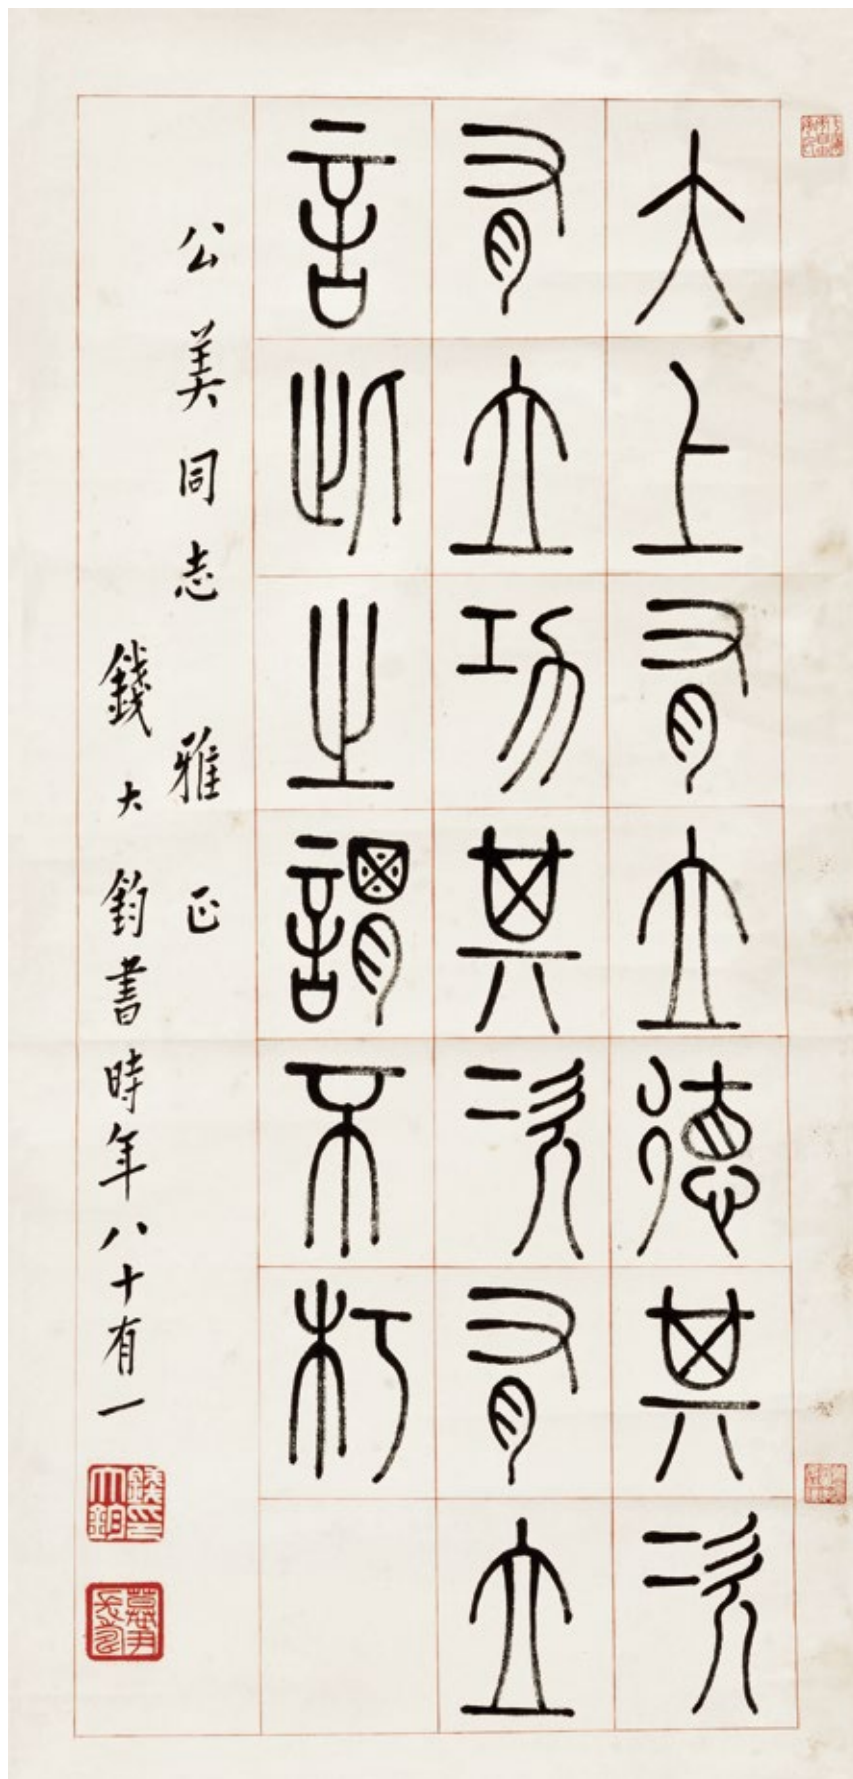 大上有立德其次
有立功其次有立
言此之謂不朽
公美同志 雅正
錢大鈞書時年八十有一
錢大鈞印
慕尹